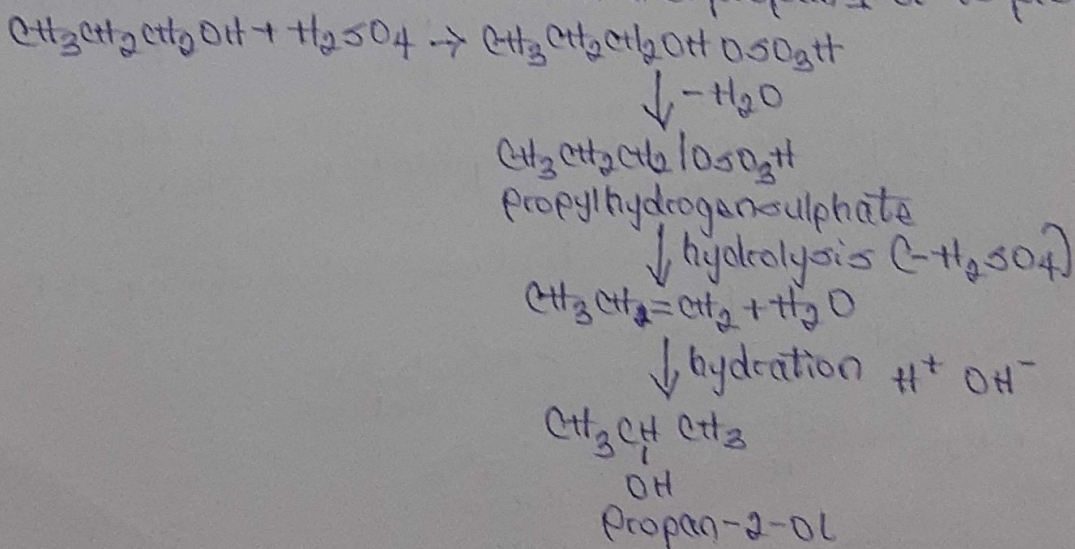 CH3CH2CH2OH + H2SO4 → CH3CH2CH2OH OSO3H
↓ -H2O
CH3CH2CH2 | OSO3H
propylhydrogensulphate
↓ hydrolysis (-H2SO4)
CH3CH2=CH2 + H2O
↓ hydration H+ OH-
CH3CH CH3
OH
Propan-2-OL